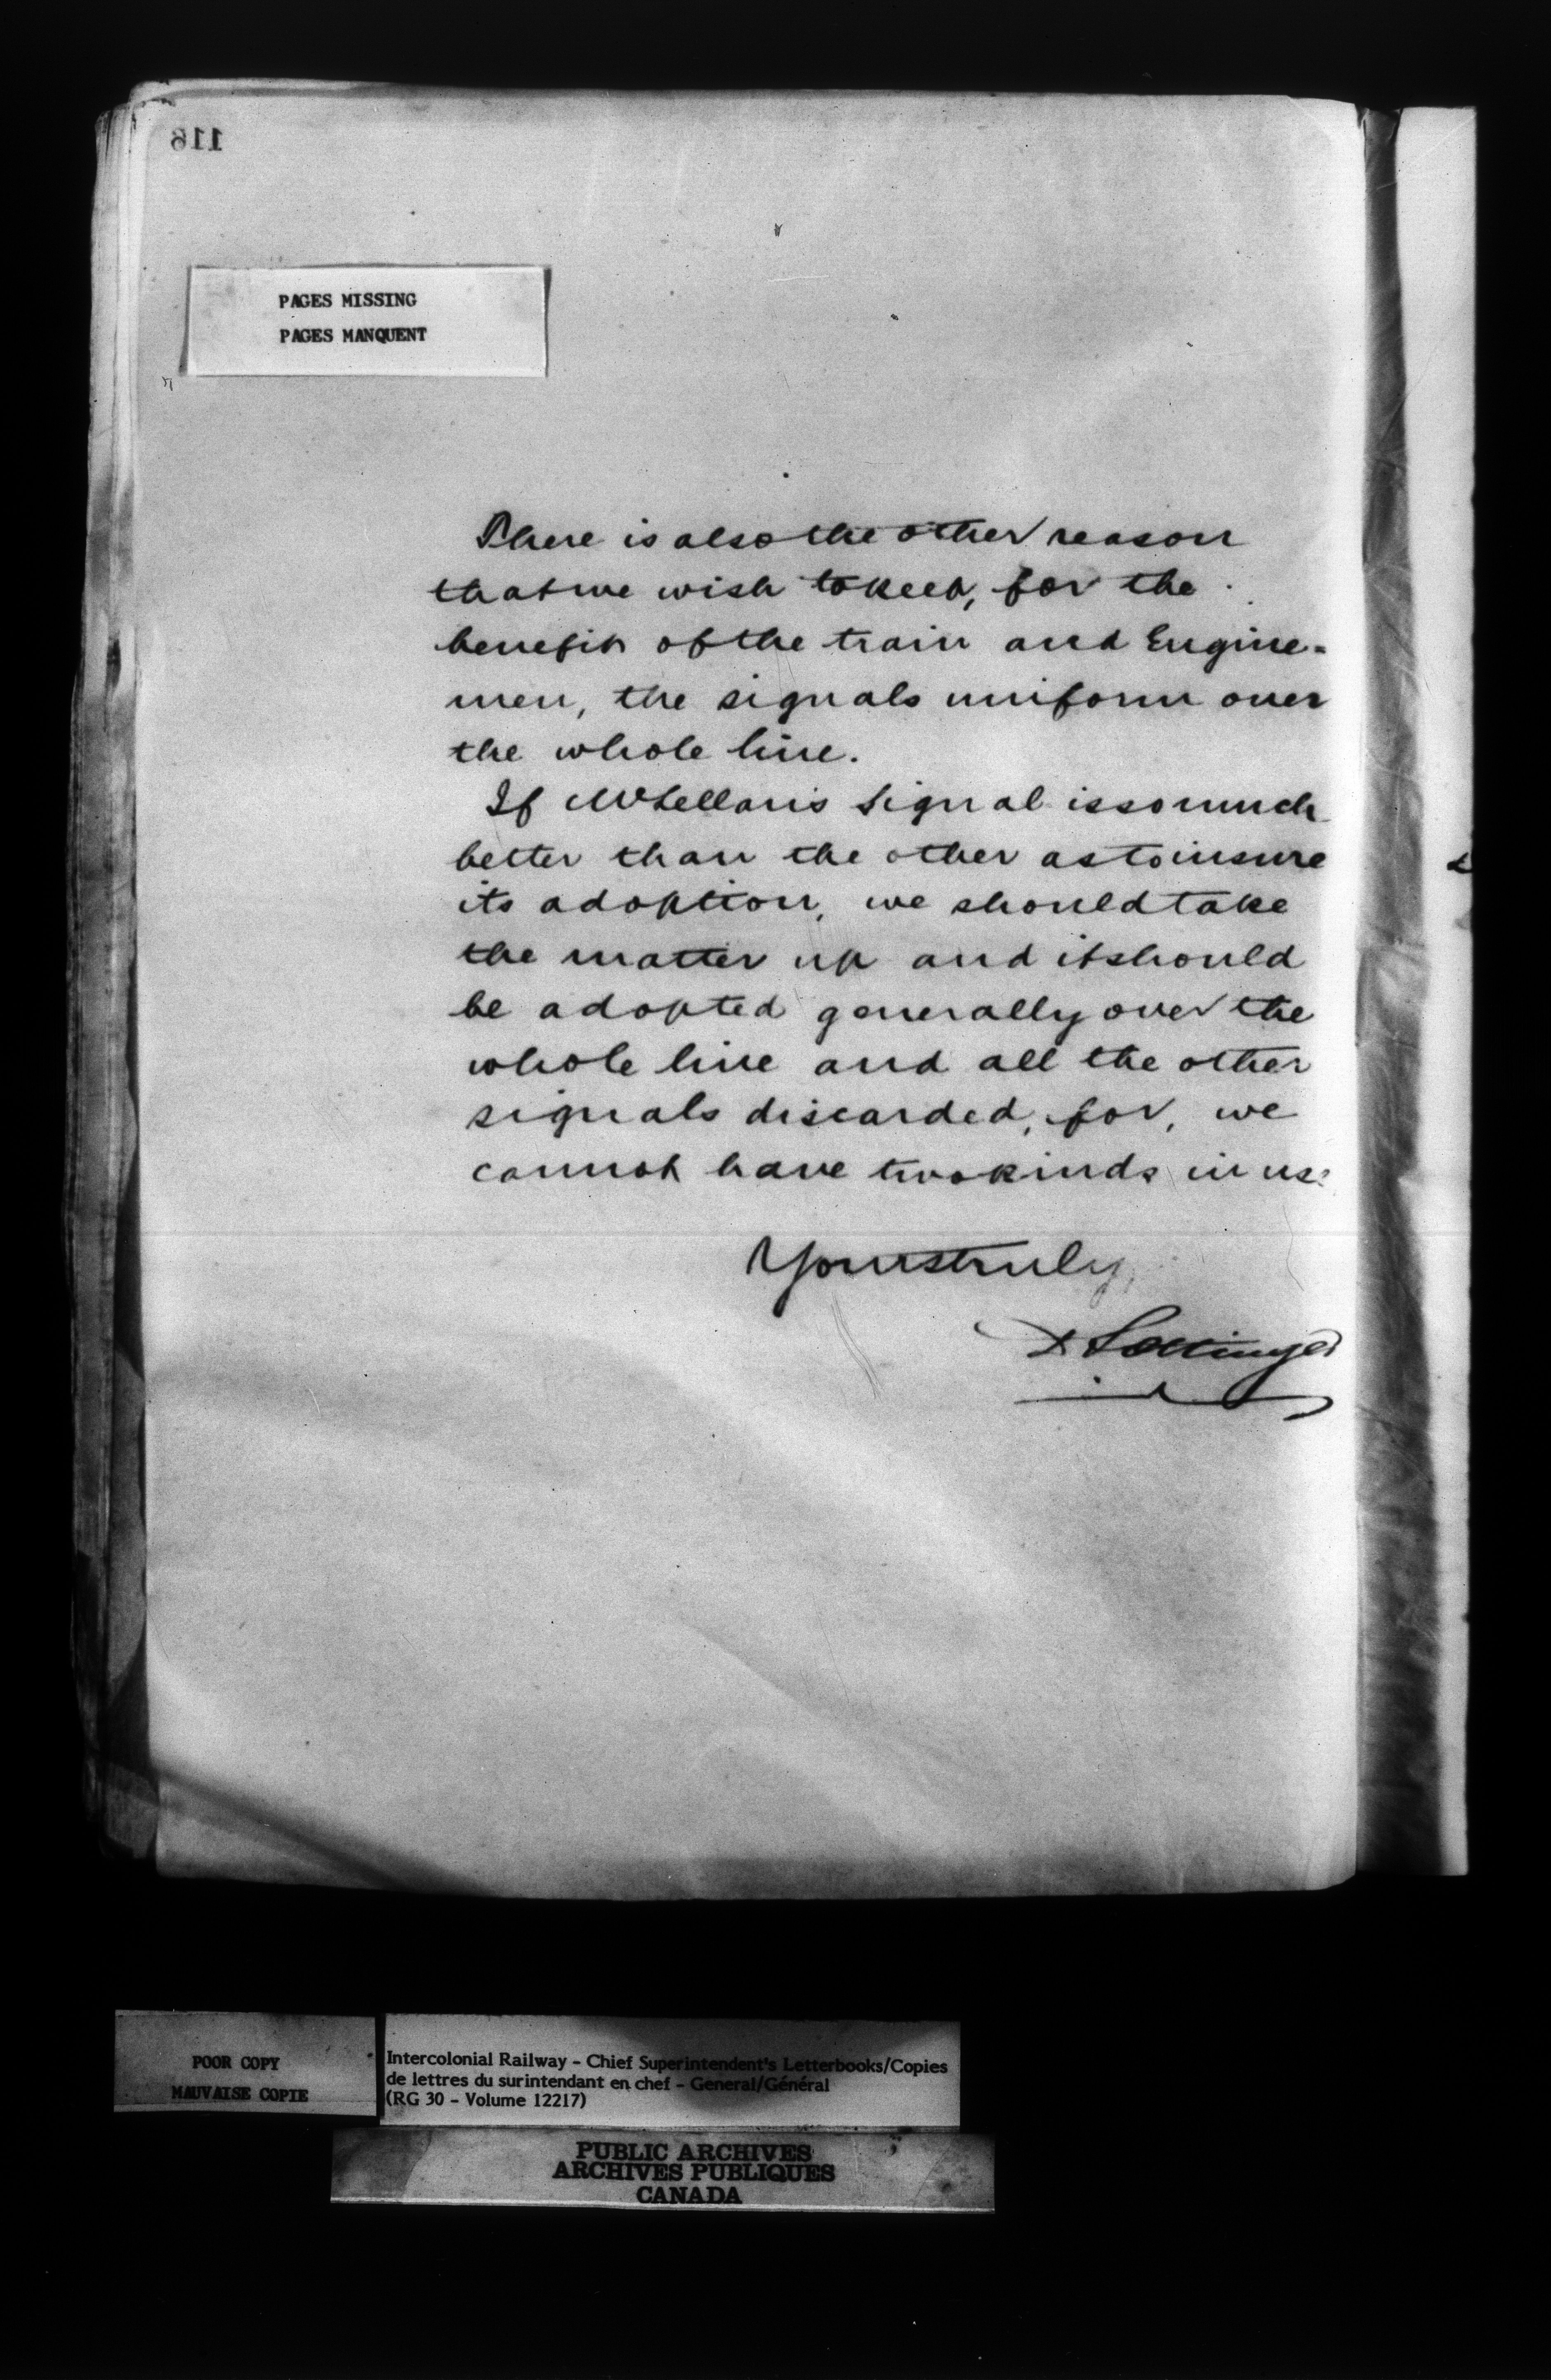 116
PAGES MISSING
PAGES MANQUENT
There is also the other reason
that we wish to keep, for the
benefit of the train and Engine=
men, the signals uniform over
the whole line.
If McLellan's signal is so much
better than the other as to insure
its adoption, we should take
the matter up and it should
be adopted generally over the
whole line and all the other
signals discarded, for, we
cannot have two kinds in use
Yours truly,
D Pottinger
POOR COPY
MAUVAISE COPIE
Intercolonial Railway - Chief Superintendent's Letterbooks/Copies
de lettres du surintendant en chef - General/Général
(RG 30 - Volume 12217)
PUBLIC ARCHIVES
ARCHIVES PUBLIQUES
CANADA